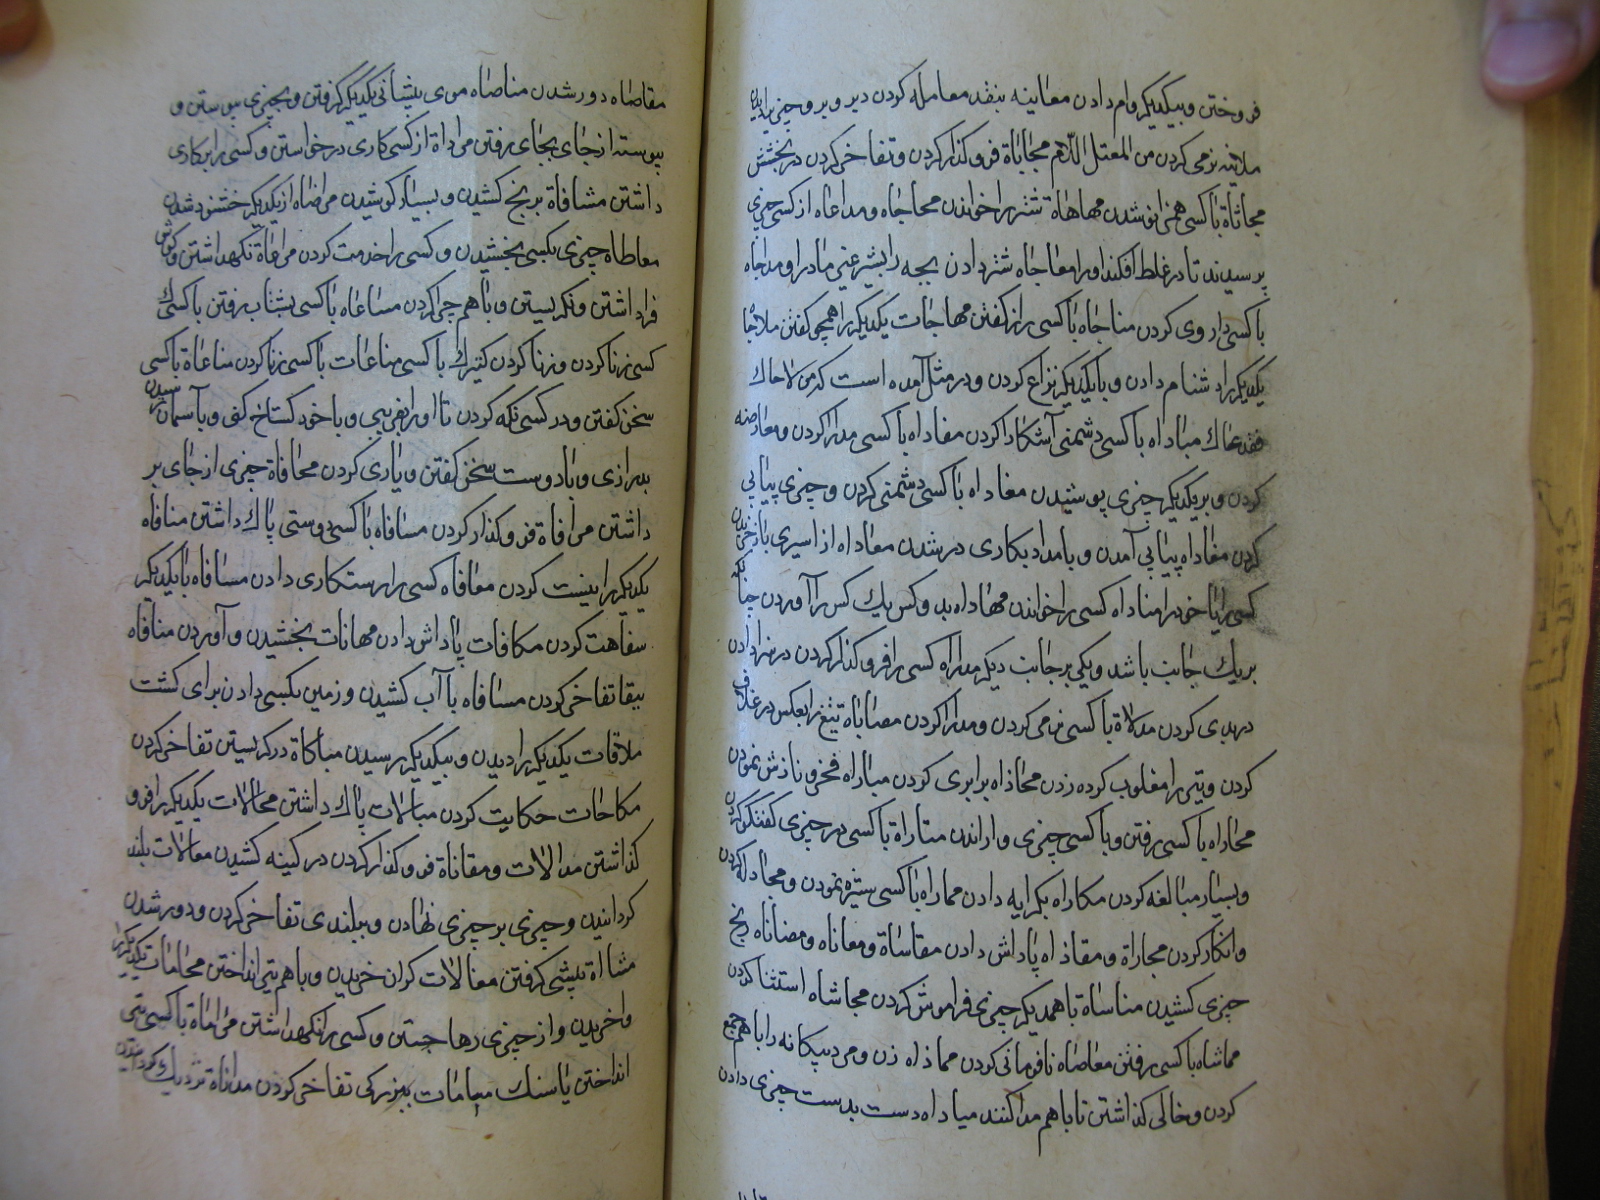 فروختن و بیکدیکر وام دادن معاینه بنقد معامله کردن دیر و بر و چیزی
ملاینه نرمی کردن من المعتل اللام محاباة فرو کذار کردن و تفاخر کردن در بخشش
محاثاة با کسی همزانو شدن مهاهاة شتر را خواندن محاجاه و مداعاه از کسی چیزی
پرسیدند تا در غلط افکند او را معاجاه شتر دادن بچه را بشیر غیر مادر او مداجاه
با کسی دار وی کردن مناجاه با کسی راز کفتن مهاجات یکدیکر را هجو کفتن ملاحاه
یکدیکر را دشنام دادن و با یکدیکر نزاع کردن و در مثل آمده است که من لاحاك
فقد عاداك مباداه با کسی دشمنی آشکارا کردن مفاداه با کسی مدارا کردن و معارضه
کردن و بر یکدیکر چیزی پوشیدن معاداه با کسی دشمنی کردن و چیزی پیاپی
کردن مغاداه پیاپی آمدن و بامداد بکاری در شدن مفاداه از اسیری باز خریدن
کسی را یا خود را مناداه کسی را خواندن مهاداه بدو کس یك کس را آوردن چنانکه
بر یك جانب باشد و یکی بر جانب دیکر مداراه کسی را فرو کذار کردن
در بدی کردن مدالاة با کسی نرمی کردن و مدارا کردن مصاباه تیغ را بعکس در غلاف
کردن و تیر را مغلوب کرده زدن محاذاه برابری کردن مباراه فخر و نازش نمودن
محاراه با کسی رفتن و با کسی چیزی و اراندن متاراة با کسی در چیزی کفتکو کردن
و بسیار مبالغه کردن مکاراه بکرایه دادن مماراه با کسی ستیزه نمودن و مجادله کردن
و انکار کردن مجازاة و مقاذاه پاداش دادن مقاساة و معاناه و مضاناه رنج
چیزی کشیدن مناساة با همدیکر چیزی فراموش کردن محاشاه استثنا کردن
مماشاه با کسی رفتن معاصاه نافرمانی کردن مماذاه زن و مرد بیکانه را با هم جمع
کردن و خالی کذاشتن تا با هم مذا کنند میاداه دست بدست چیزی دادن
مقاصاه دور شدن مناصاه موی پیشانی یکدیکر کرفتن و بچیزی پیوستن و
پیوسته از جای بجای رفتن مراداة از کسی کاری در خواستن و کسی را بر کاری
داشتن مشاقاة برنج کشیدن و بسیار کوشیدن مراضاه از یکدیکر خشنود شدن
معاطاه چیزی بکسی بخشیدن و کسی را خدمت کردن مراعاة نکهداشتن و کوش
فرا داشتن و نکریستن و با هم چرا کردن مساعاه با کسی بشتاب رفتن با کسی
کسی زنا کردن و زنا کردن کنیزك با کسی مباغات با کسی زنا کردن مناغاة با کسی
سخن کفتن و در کسی نکه کردن تا او را بفریبی و با خود کستاخ کنی و بآسمان رسیدن
بدرازی و با دوست سخن کفتن و یاری کردن مجافاة چیزی از جای بر
داشتن مرافاة فرو کذار کردن مصافاه با کسی دوستی پاك داشتن منافاه
یکدیکر را نیست کردن معافاه کسی را رستکاری دادن مسافاه با یکدیکر
سفاهت کردن مکافات پاداش دادن مهانات بخشیدن و آوردن منافاه
ببقا تفاخر کردن مساقاه با آب کشیدن و زمین بکسی دادن برای کشت
ملاقات یکدیکر را دیدن و بیکدیکر رسیدن مباکاة در کریستن تفاخر کردن
محاکات حکایت کردن مبالات باك داشتن مخالات یکدیکر را فرو
کذاشتن مدالات و مقاناة فرو کذار کردن در کینه کشیدن معالات بلند
کردانیدن و چیزی بر چیزی نهادن و ببلندی تفاخر کردن و دور شدن
مشااة پیشی کرفتن مغالات کران خریدن و با هم تیر انداختن محامات یکدیکر را
واخریدن و از چیزی رها جستن و کسی را نکهداشتن مراماة با کسی تیر
انداختن یا سنك مباهات ببزرکی تفاخر کردن مداناة نزدیك کردانیدن